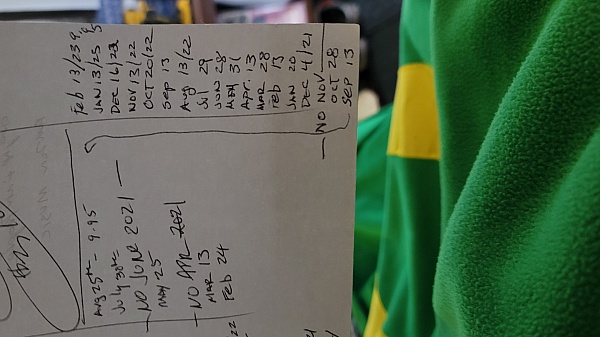 Aug 25th - 9.95
July 30th
- NO JUNE 2021 -
MAY 25
- NO APR 2021
MAR 13
Feb 24
Feb 13/23
JAN 13/23
DEC 16/22
NOV 13/22
OCT 20/22
Sep 13
Aug 13/22
Jul 29
JUN 28
MAY 31
APR. 13
MAR 28
Feb 13
JAN 20
DEC 4/21
- NO NOV
OCT 28
SEP 13